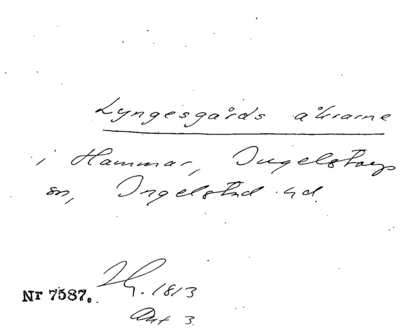 Lyngesgårds åkrarne
i Hammar, Ingelstorps
sn, Ingelstad hd.
Nr 7587. 1813
Akt 3.